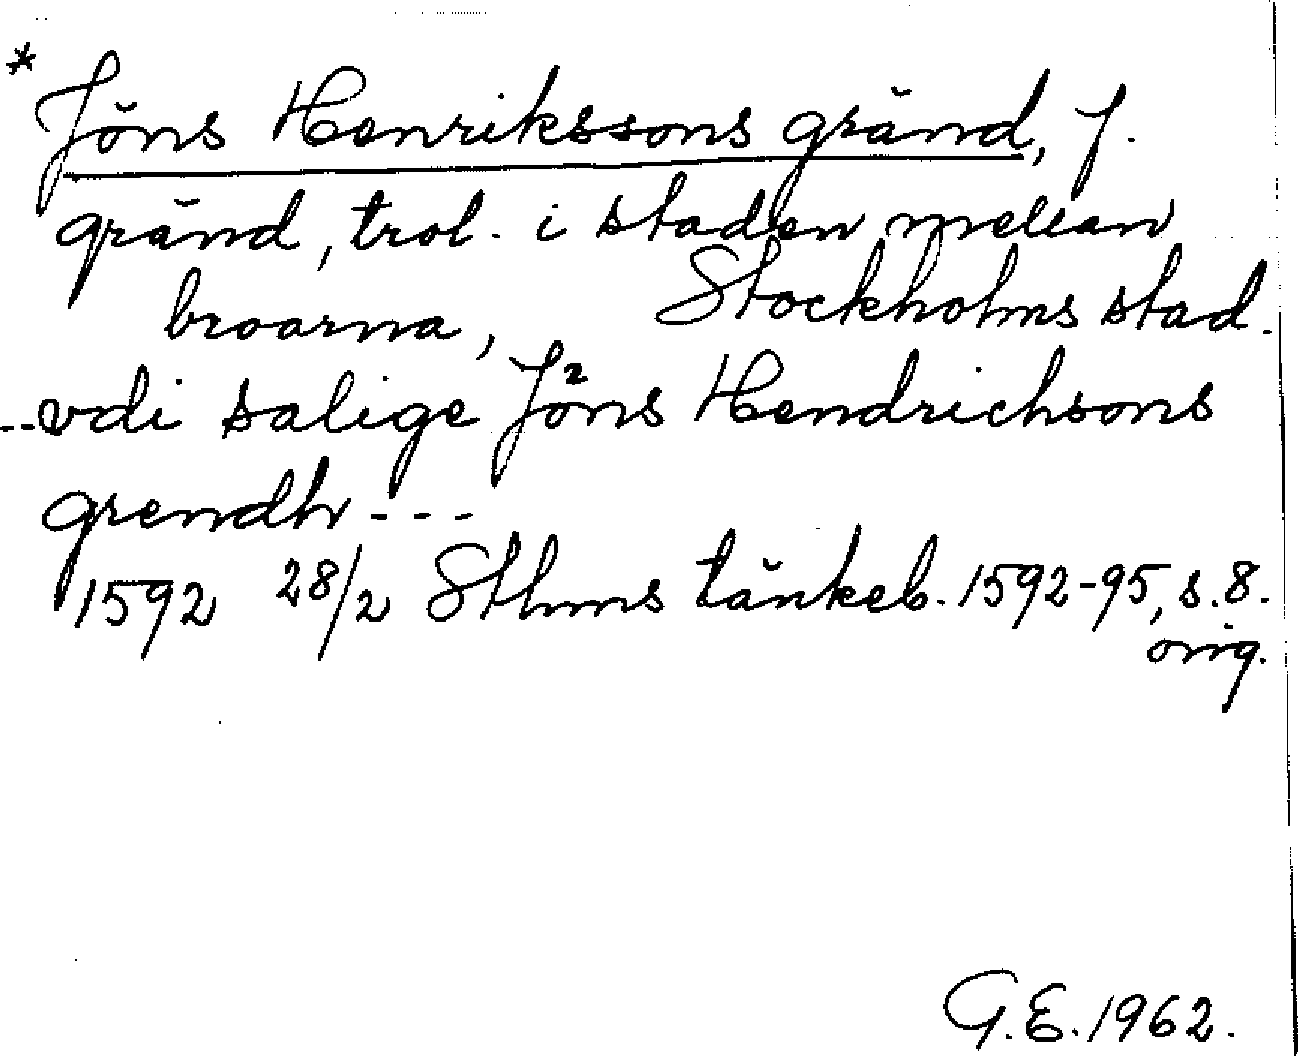 * Jöns Henrikssons gränd, f.
gränd, trol. i staden mellan
broarna, Stockholms stad.
--vdi salige Jöns Hendrichsons
grendh ---
1592 28/2 Sthms tänkeb. 1592-95, s. 8.
orig.
G.E. 1962.